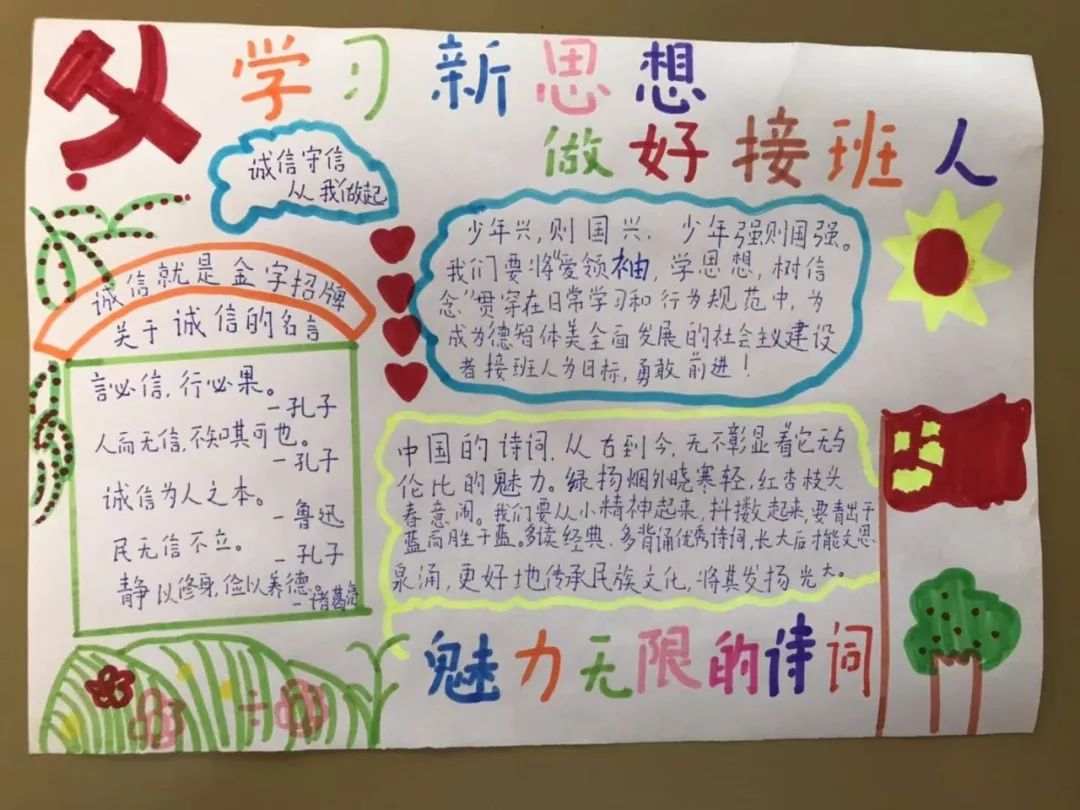 学习新思想
做好接班人
诚信守信
从我做起
诚信就是金字招牌
关于诚信的名言
言必信，行必果。
—孔子
人而无信，不知其可也。
—孔子
诚信为人之本。
—鲁迅
民无信不立。
—孔子
静以修身，俭以养德
—诸葛亮
少年兴，则国兴．少年强则国强。
我们要将“爱领袖，学思想，树信
念”贯穿在日常学习和行为规范中，为
成为德智体美全面发展的社会主义建设
者接班人为目标，勇敢前进！
中国的诗词，从古到今，无不彰显着它无与
伦比的魅力。绿扬烟外晓寒轻，红杏枝头
春意闹。我们要从小精神起来，抖擞起来，要青出于
蓝而胜于蓝。多读经典．多背诵优秀诗词，长大后才能文思
泉涌，更好地传承民族文化，将其发扬光大。
魅力无限的诗词